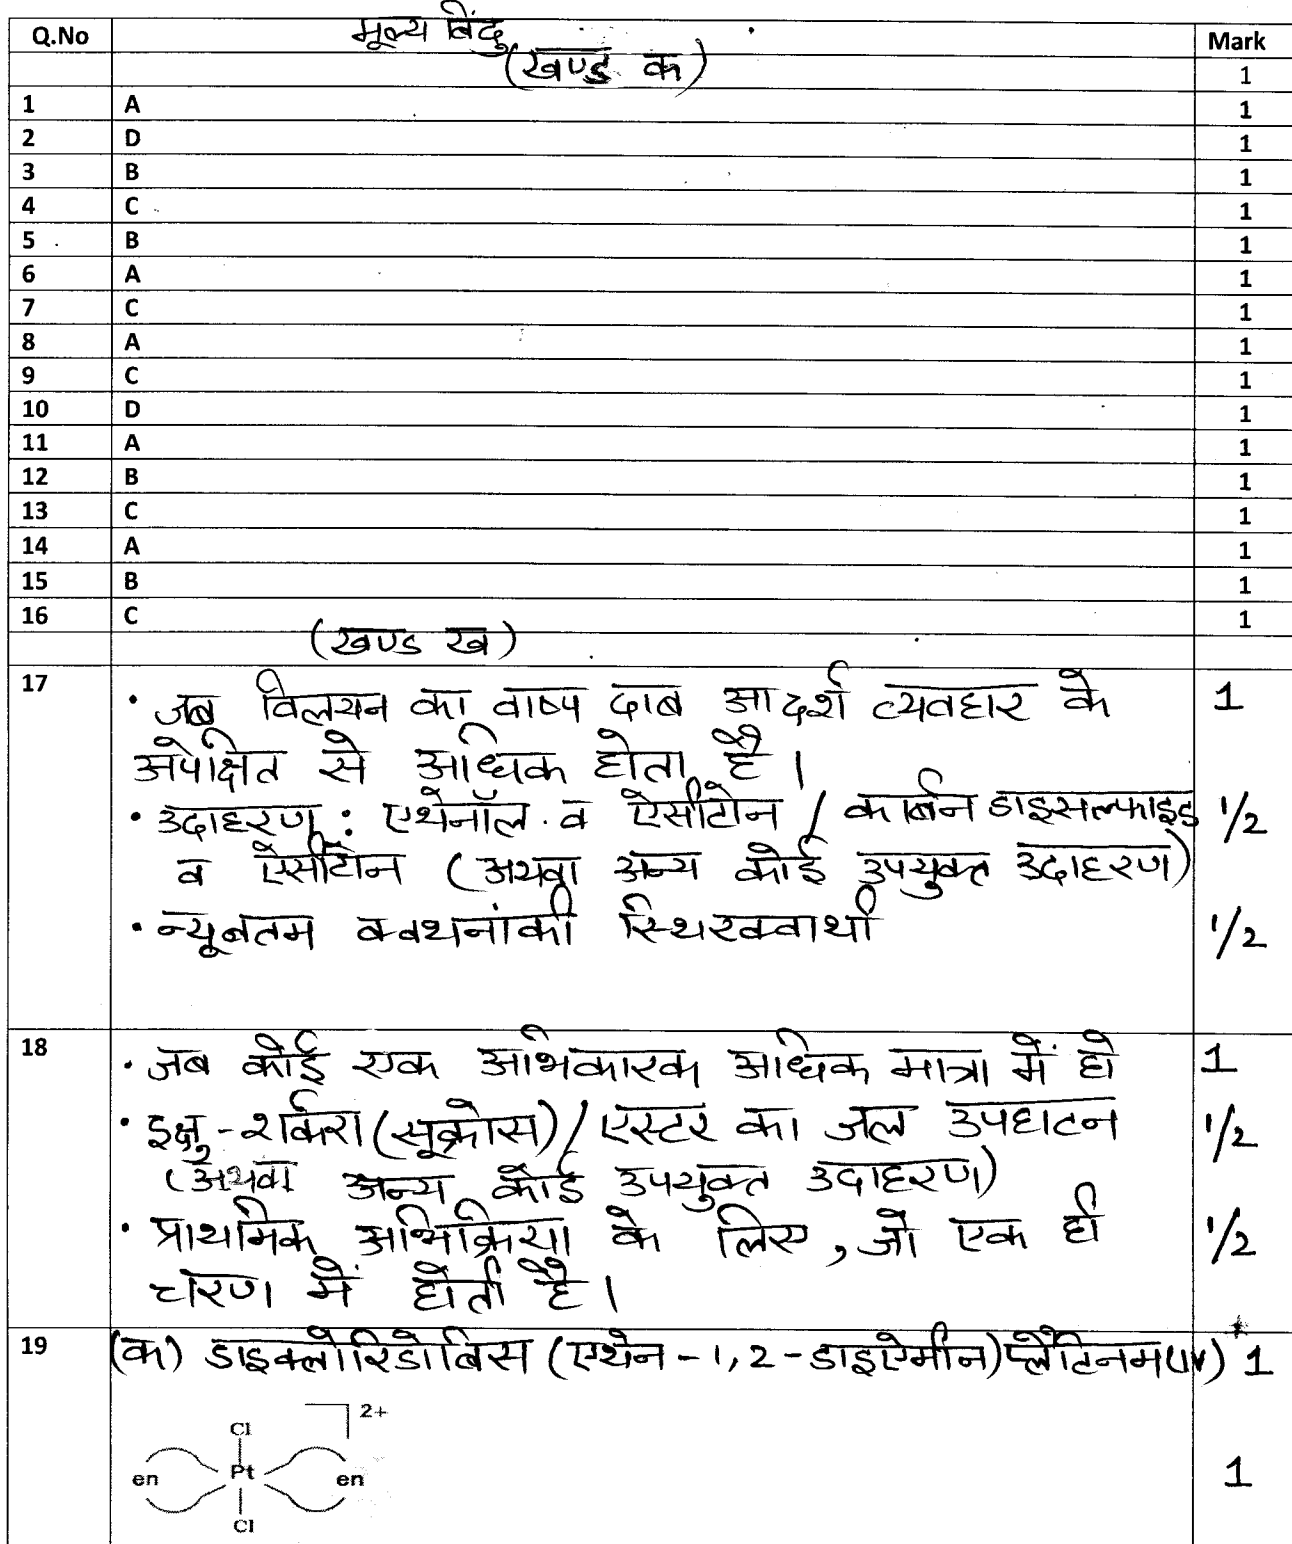 Q.No मूल्य बिंदु Mark
(खण्ड क) 1
1 A 1
2 D 1
3 B 1
4 C 1
5 B 1
6 A 1
7 C 1
8 A 1
9 C 1
10 D 1
11 A 1
12 B 1
13 C 1
14 A 1
15 B 1
16 C 1
(खण्ड ख)
17 • जब विलयन का वाष्प दाब आदर्श व्यवहार के 1
अपेक्षित से अधिक होता है।
• उदाहरण: एथेनॉल व ऐसीटोन / कार्बन डाइसल्फाइड 1/2
व ऐसीटोन (अथवा अन्य कोई उपयुक्त उदाहरण)
• न्यूनतम क्वथनांकी स्थिरक्वाथी 1/2
18 • जब कोई एक अभिकारक अधिक मात्रा में हो 1
• इक्षु-शर्करा (सूक्रोस) / एस्टर का जल उपघटन 1/2
(अथवा अन्य कोई उपयुक्त उदाहरण)
• प्राथमिक अभिक्रिया के लिए, जो एक ही 1/2
चरण में होती है।
19 (क) डाइक्लोरिडोबिस (एथेन-1,2-डाइऐमीन) प्लैटिनम(IV) 1
2+
Cl
en Pt en 1
Cl